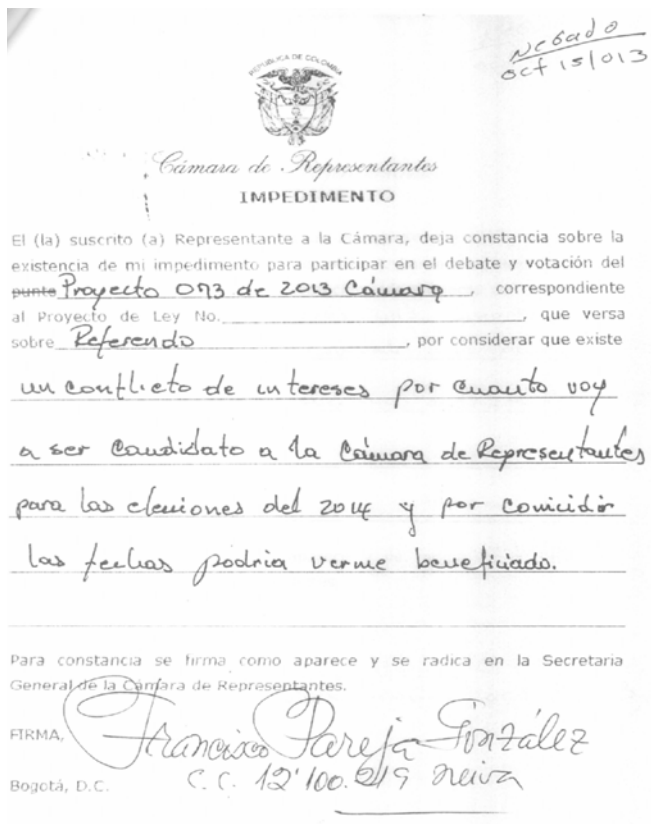 Negado
oct 15/013
REPUBLICA DE COLOMBIA
Cámara de Representantes
IMPEDIMENTO
El (la) suscrito (a) Representante a la Cámara, deja constancia sobre la
existencia de mi impedimento para participar en el debate y votación del
punto Proyecto 073 de 2013 Cámara, correspondiente
al Proyecto de Ley No.____________________, que versa
sobre Referendo____________________, por considerar que existe
un conflicto de intereses por cuanto voy
a ser Candidato a la Cámara de Representantes
para las elecciones del 2014 y por coincidir
las fechas podria verme beneficiado.
Para constancia se firma como aparece y se radica en la Secretaria
General de la Cámara de Representantes.
FIRMA, Francisco Pareja González
Bogotá, D.C. C.C. 12'100.219 Neiva